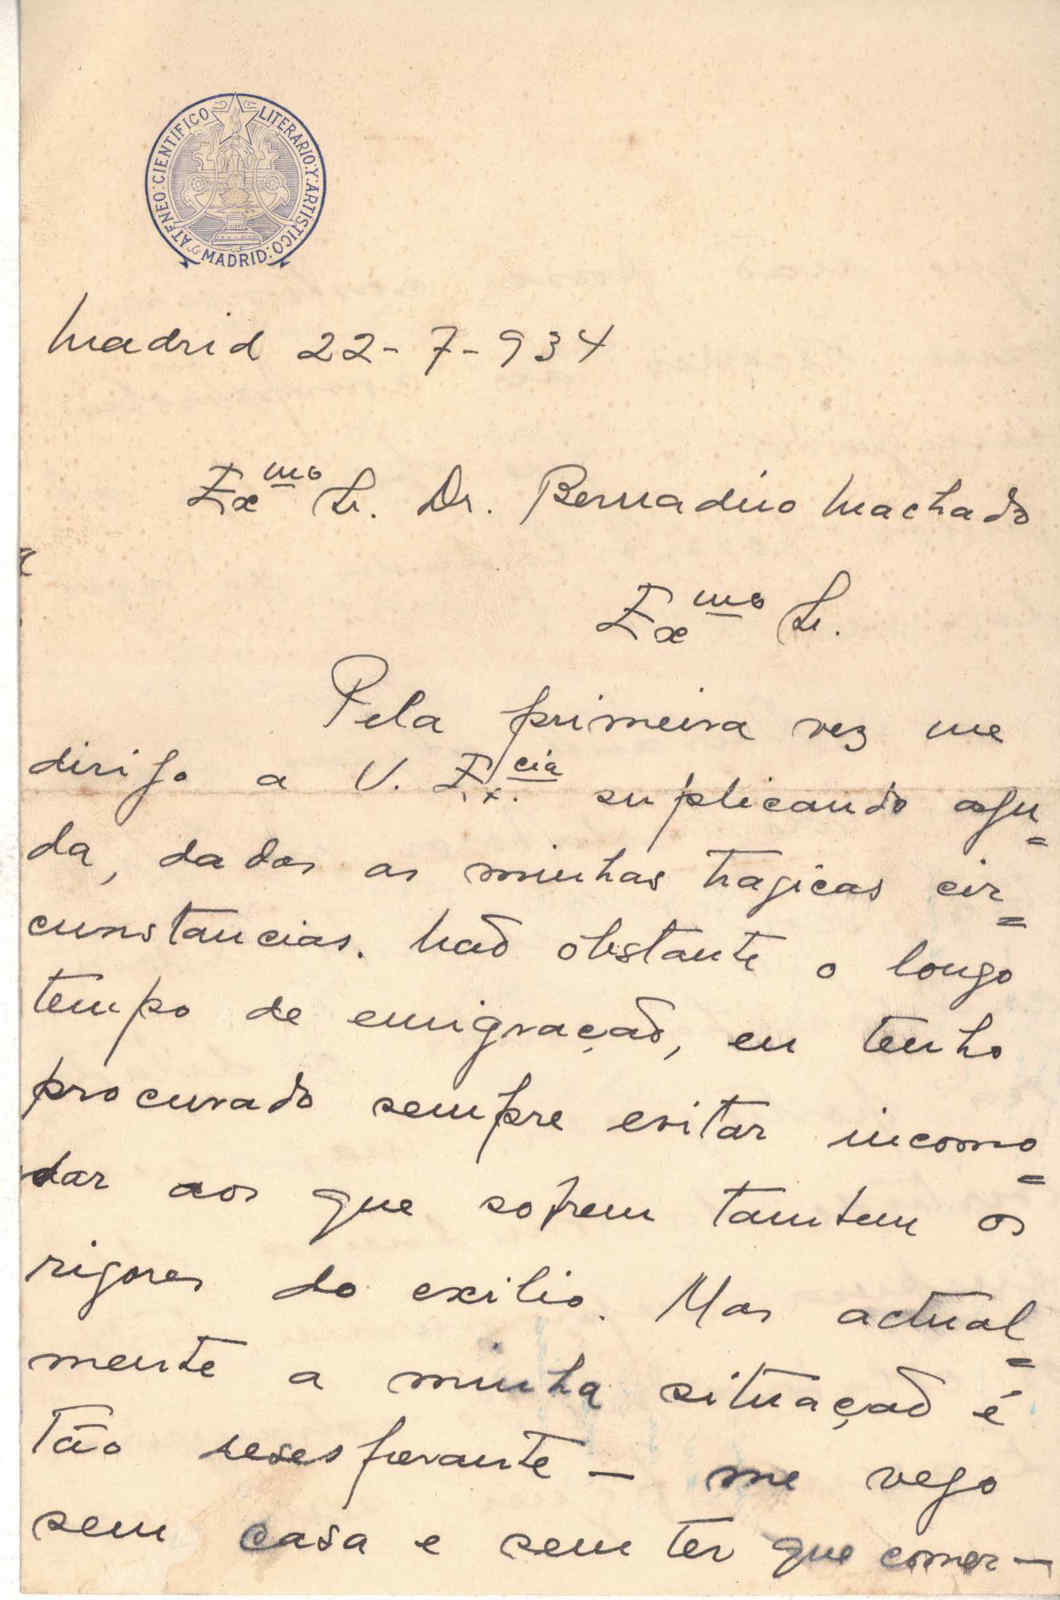 ATENEO·CIENTIFICO LITERARIO·Y·ARTISTICO
MADRID
Madrid 22-7-934
Exmo Sr. Dr. Bernadino Machado
Exmo Sr.
Pela primeira vez me
dirijo a V. Ex.cia suplicando aju=
da, dadas as minhas tragicas cir=
cunstancias. Não obstante o longo
tempo de emigração, eu tenho
procurado sempre evitar incomo=
dar aos que sofrem tambem os
rigores do exilio. Mas actual=
mente a minha situação é
tão desesperante — me vejo
sem casa e sem ter que comer —